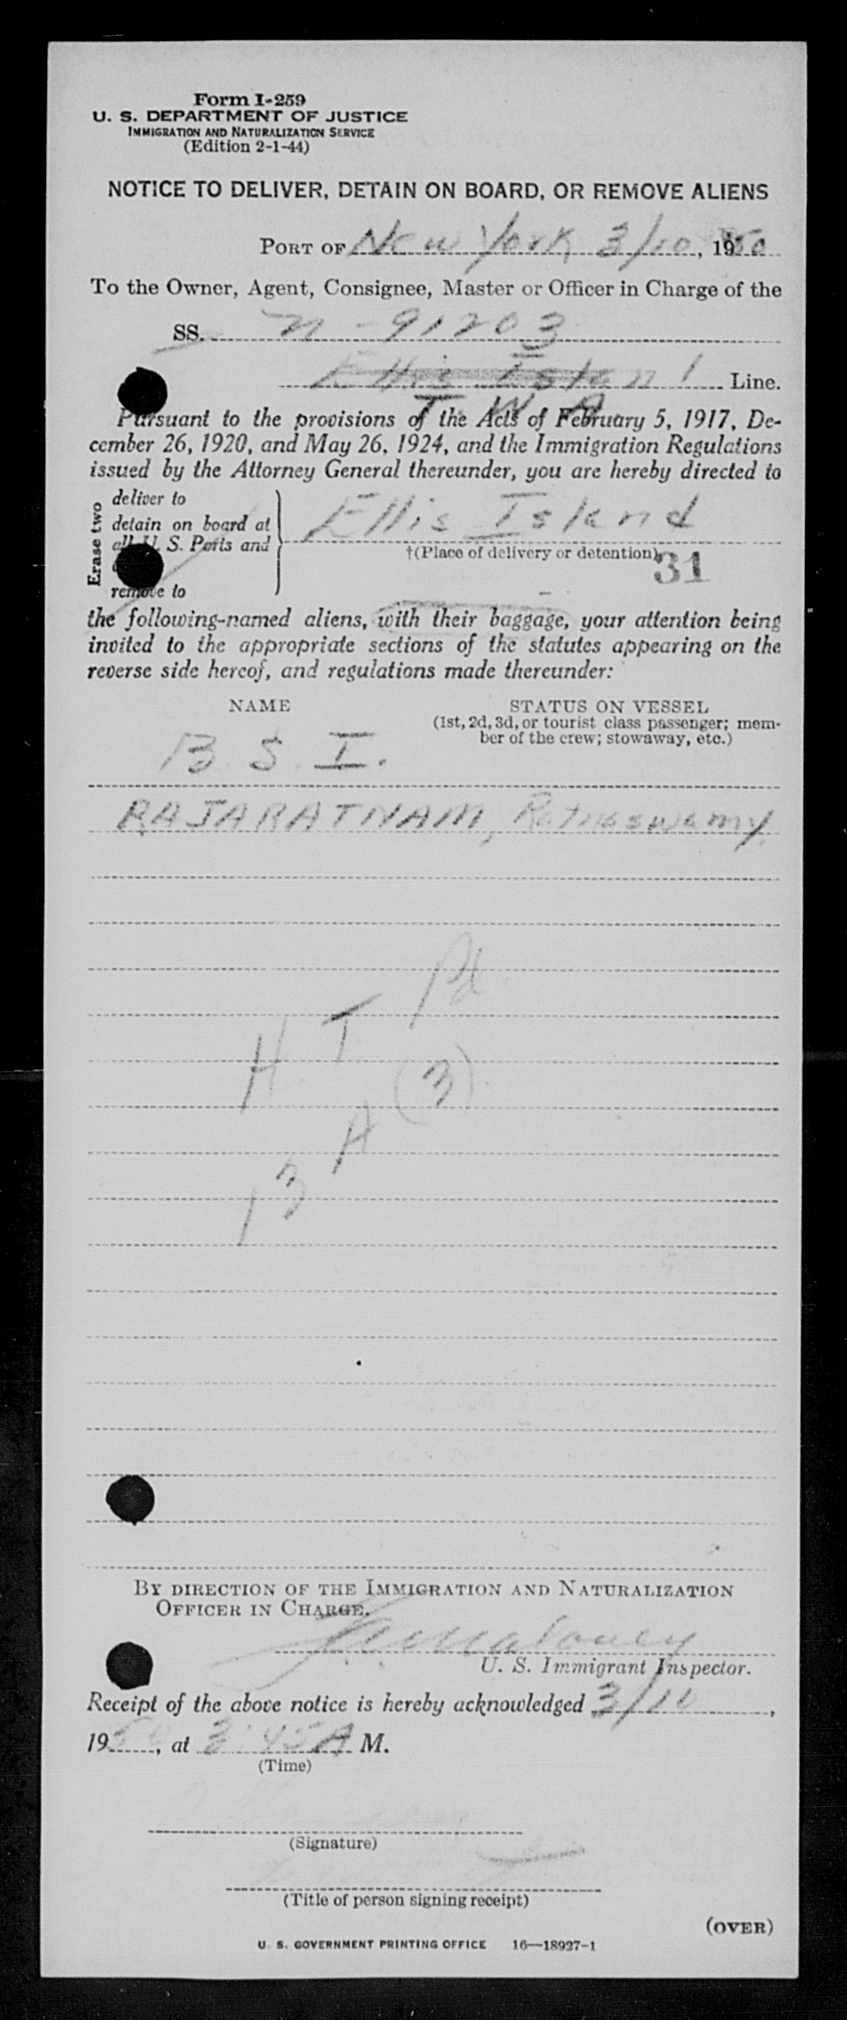 Form I-259
U. S. DEPARTMENT OF JUSTICE
IMMIGRATION AND NATURALIZATION SERVICE
(Edition 2-1-44)
NOTICE TO DELIVER, DETAIN ON BOARD, OR REMOVE ALIENS
PORT OF New York 3/10, 1950
To the Owner, Agent, Consignee, Master or Officer in Charge of the
SS. N-91203
Ellis Island Line.
T W A
Pursuant to the provisions of the Acts of February 5, 1917, De-
cember 26, 1920, and May 26, 1924, and the Immigration Regulations
issued by the Attorney General thereunder, you are hereby directed to
Erase two
deliver to
detain on board at
all U. S. Ports and
remove to
Ellis Island
†(Place of delivery or detention)
31
the following-named aliens, with their baggage, your attention being
invited to the appropriate sections of the statutes appearing on the
reverse side hereof, and regulations made thereunder:
NAME
STATUS ON VESSEL
(1st, 2d, 3d, or tourist class passenger; mem-
ber of the crew; stowaway, etc.)
B. S. I.
RAJARATNAM, Ratnaswamy
Pd
H. T
(3)
13 A
BY DIRECTION OF THE IMMIGRATION AND NATURALIZATION
OFFICER IN CHARGE.
U. S. Immigrant Inspector.
Receipt of the above notice is hereby acknowledged 3/10,
1950, at 3:45 A M.
(Time)
(Signature)
(Title of person signing receipt)
(OVER)
U. S. GOVERNMENT PRINTING OFFICE 16—18927-1